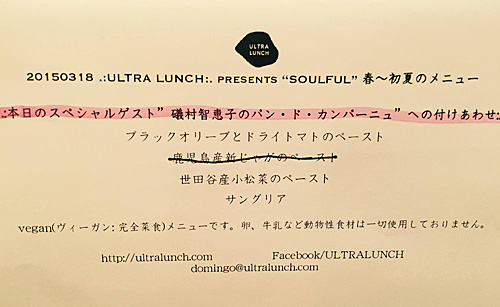 ULTRA
LUNCH
20150318 .:ULTRA LUNCH:. PRESENTS “SOULFUL” 春～初夏のメニュー
.:本日のスペシャルゲスト” 磯村智恵子のパン・ド・カンパーニュ” への付けあわせ:.
ブラックオリーブとドライトマトのペースト
鹿児島産新じゃがのペースト
世田谷産小松菜のペースト
サングリア
vegan(ヴィーガン: 完全菜食)メニューです。卵、牛乳など動物性食材は一切使用しておりません。
http://ultralunch.com Facebook/ULTRALUNCH
domingo@ultralunch.com